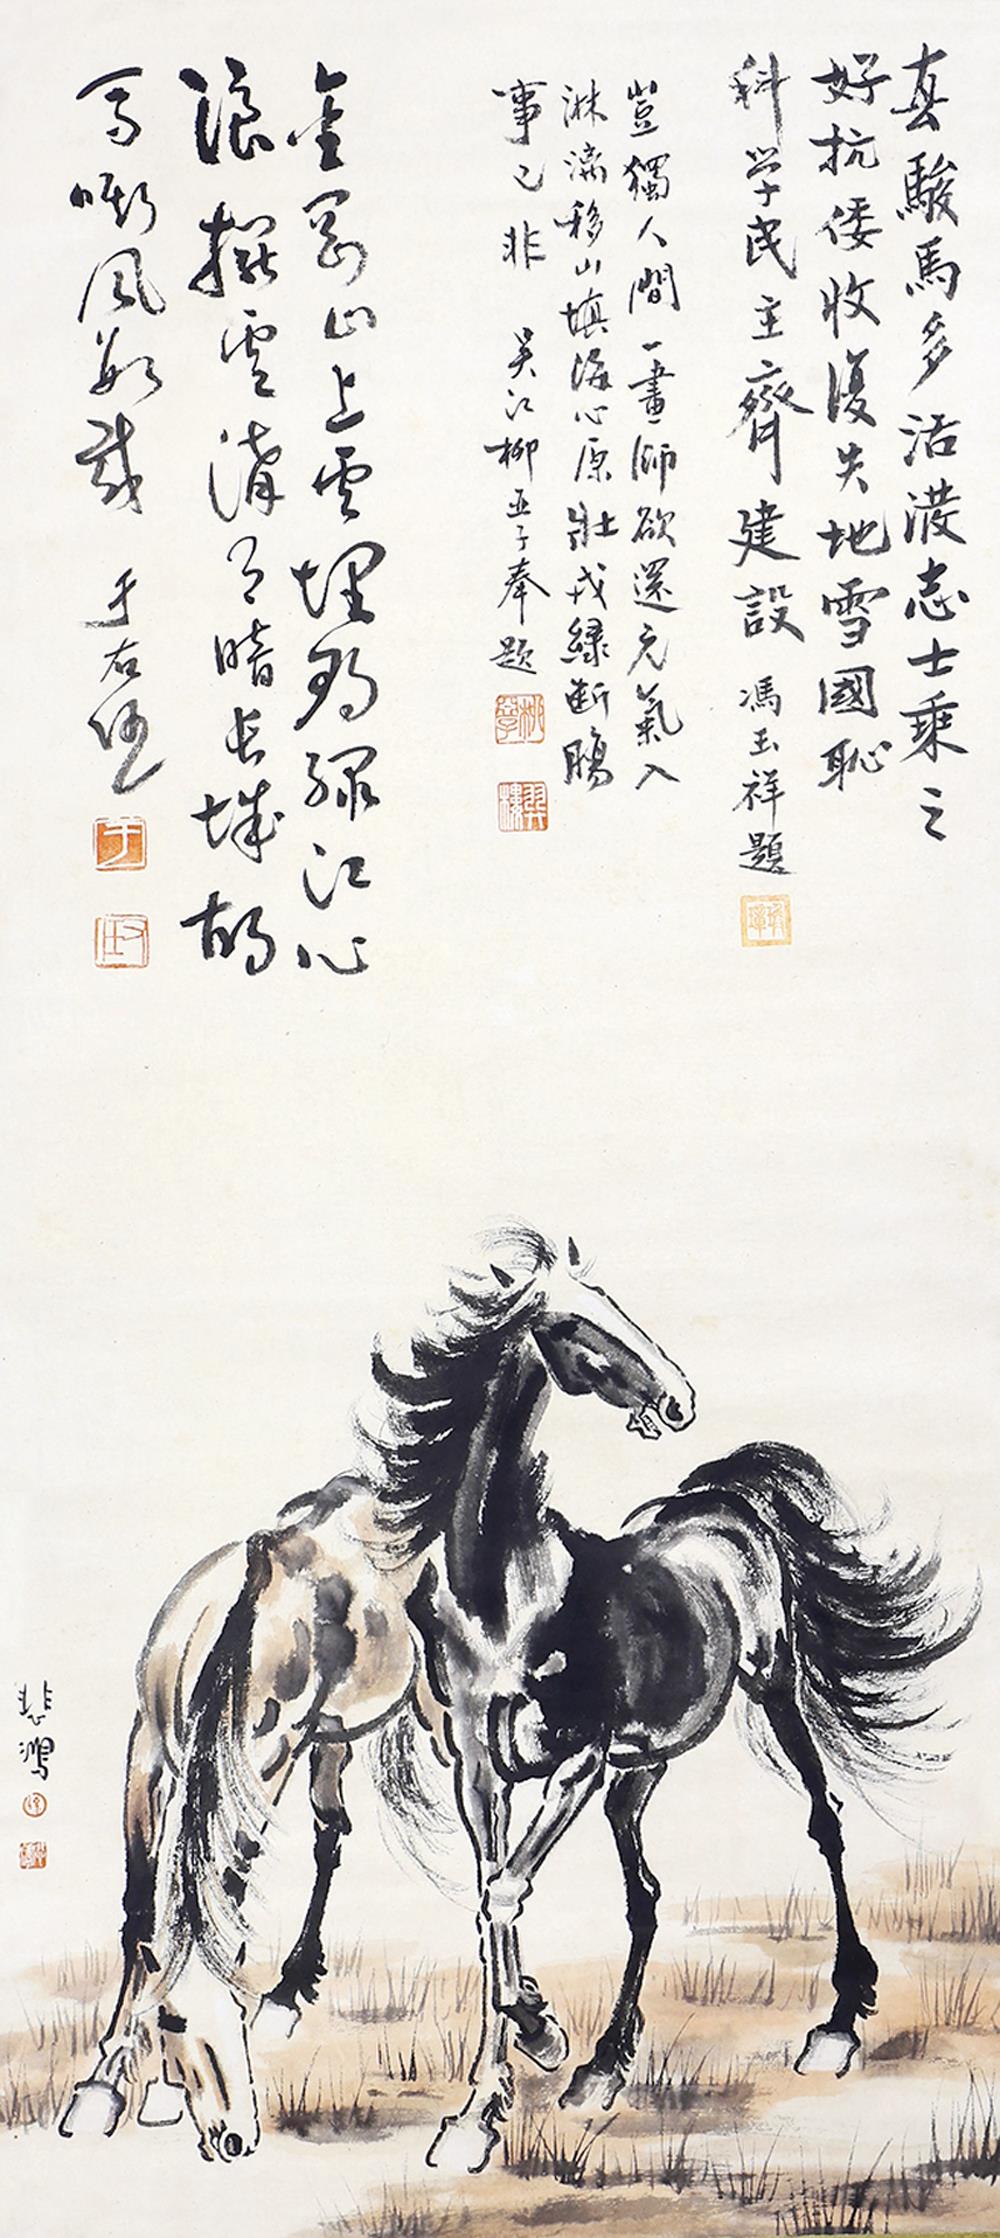 真駿馬多活潑志士乘之
好抗倭收復失地雪國恥
科学民主齊建設
馮玉祥題
豈獨人間一畫師欲還元氣入
淋漓移山填海心原壯戎綠斷腸
事已非 吴江柳亚子奉題
金剛山上雲埋
綠江心
浪擁雲溝月暗長城胡
馬嘶風數載 于右任
悲鴻